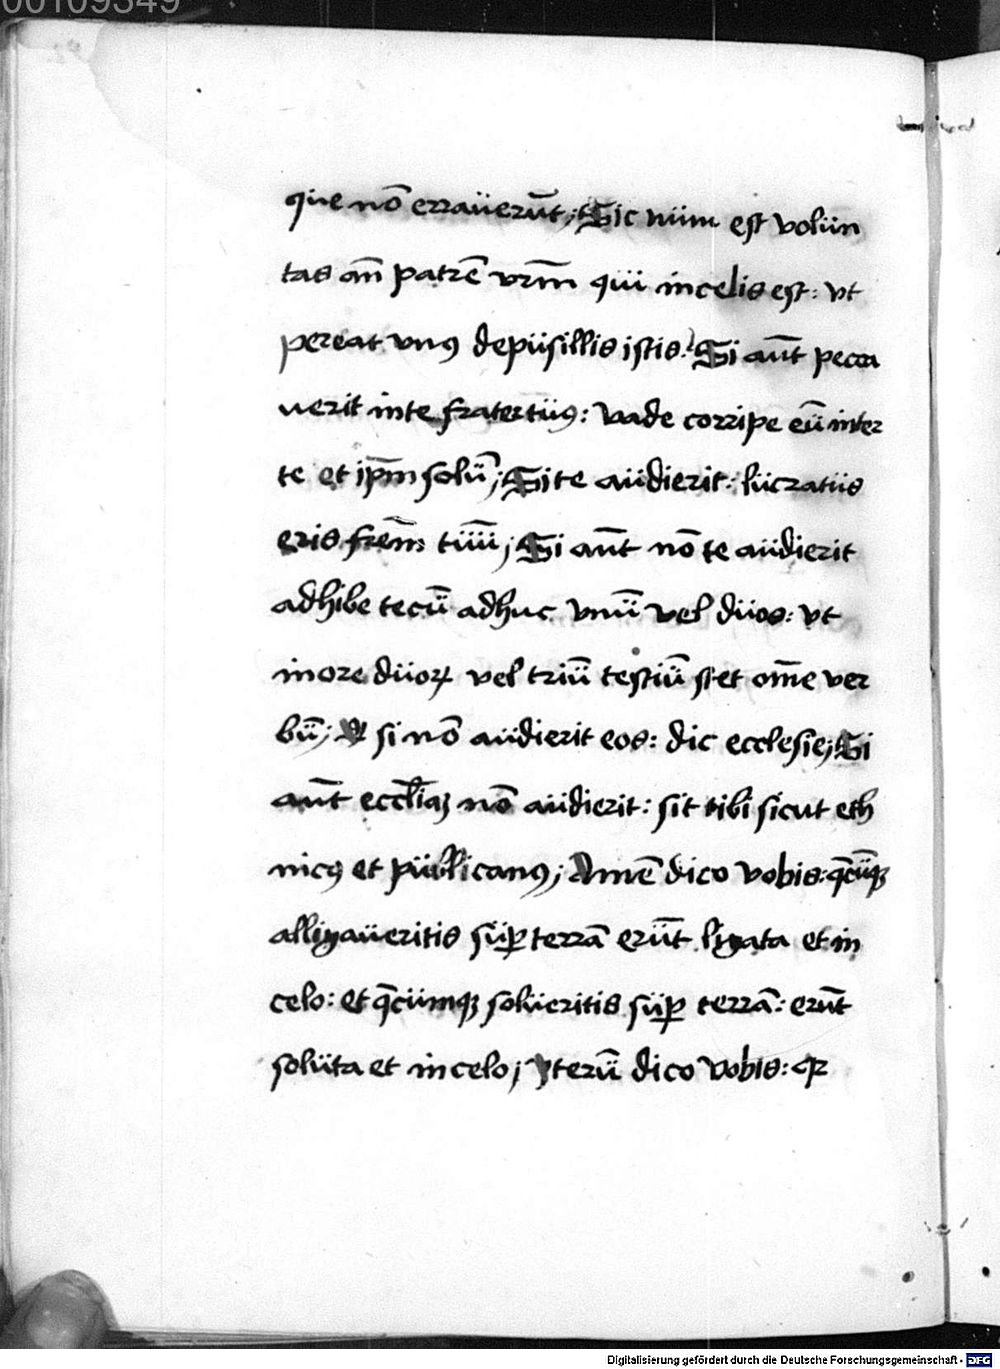 00109349
que nō erraüerūt; Sic nüm est volün
tas an̄ patrē vrm̄ qui in celis est: vt
pereat vnꝰ de püsillis istis. Si aūt pecca
uerit in te frater tüꝰ: vade corripe eū inter
te et ip̄m solū; Si te aüdierit: lücratüs
eris frem̄ tüū; Si aūt nō te aüdierit
adhibe tecū adhuc vnū vel düos: vt
in ore düoꝝ vel triū testiū stet om̄e ver
bū; Et si nō aüdierit eos: dic ecclesie; Si
aūt eccl̄iaꝫ nō aüdierit: sit tibi sicut eth
nicꝰ et püblicanꝰ; Amē dico vobis: q̄cūqꝫ
alligaüeritis süꝑ terrā erūt ligata et in
celo: et q̄cümqꝫ solüeritis süꝑ terrā: erūt
solüta et in celo; Yterū dico vobis: qꝛ
Digitalisierung gefördert durch die Deutsche Forschungsgemeinschaft - DFG